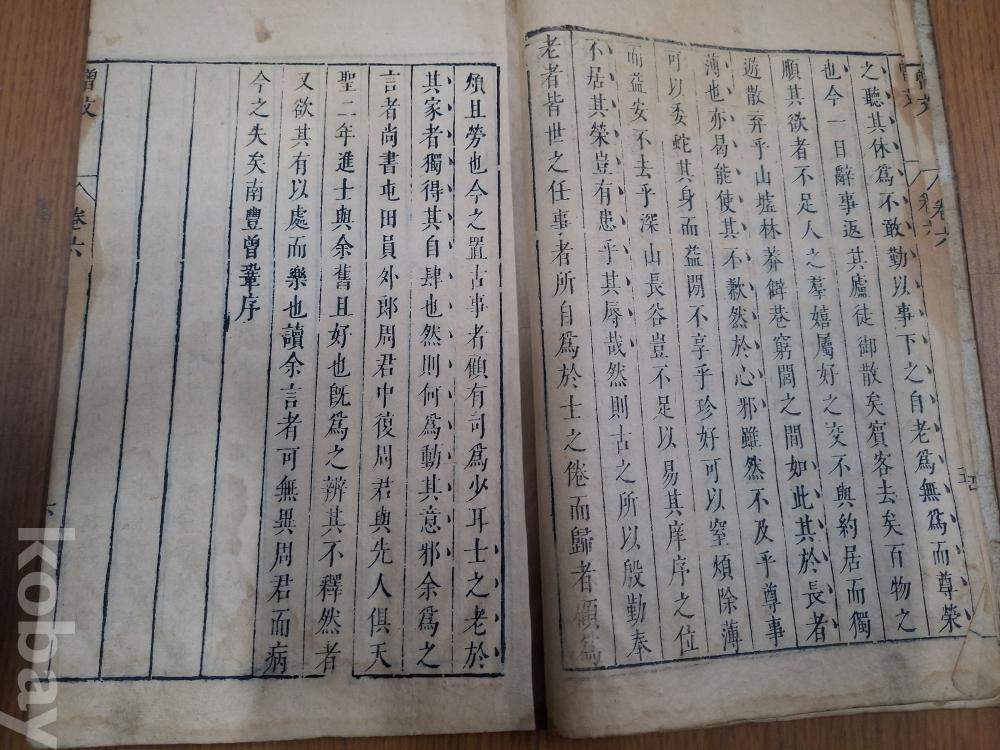 之聽其休爲不敢勤以事下之自老爲無爲而尊榮
也今一日辭事返其廬徒御散矣賓客去矣百物之
順其欲者不足人之羣嬉屬好之交不與約居而獨
遊散弃乎山墟林莽僻巷窮閭之間如此其於長者
薄也亦曷能使其不歉然於心邪雖然不及乎尊事
可以委蛇其身而益閒不享乎珍好可以窒煩除薄
而益安不去乎深山長谷豈不足以易其庠序之位
不居其榮豈有患乎其辱哉然則古之所以殷勤奉
老者皆世之任事者所自爲於士之倦而歸者顧爲
曾文
卷六
五
煩且勞也今之置古事者顧有司爲少耳士之老於
其家者獨得其自肆也然則何爲動其意邪余爲之
言者尚書屯田員外郎周君中復周君與先人俱天
聖二年進士與余舊且好也旣爲之辨其不釋然者
又欲其有以處而樂也讀余言者可無異周君而病
今之失矣南豐曾鞏序
曾文
卷六
kobay